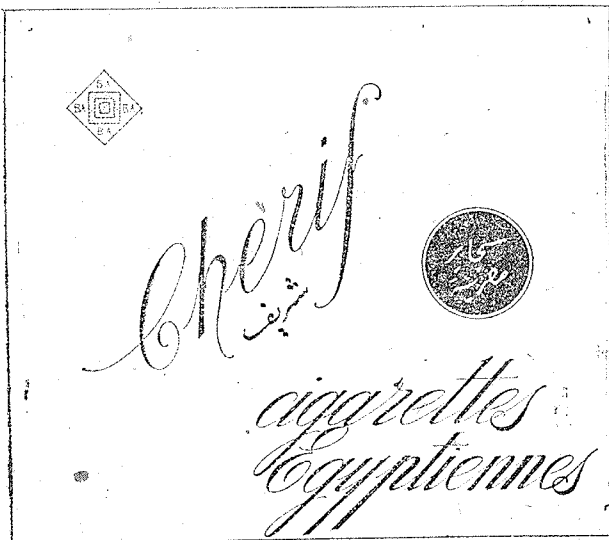 BA
BA BA
BA
Chérif
شريف
سجاير
مصرية
cigarettes
Egyptiennes